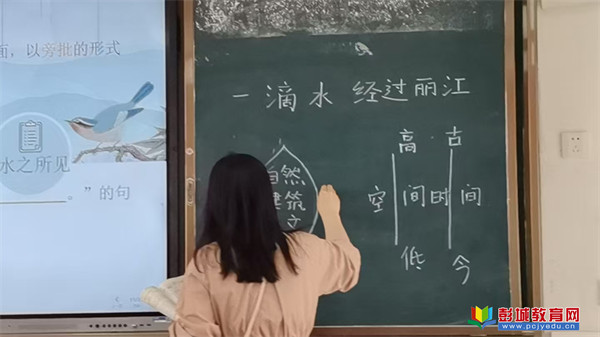 面，以旁批的形式
水之所见
。”的句
一滴水 经过丽江
高 古
自然
建筑
文
空间时间
低 今
彭城教育网
www.pcjyedu.com